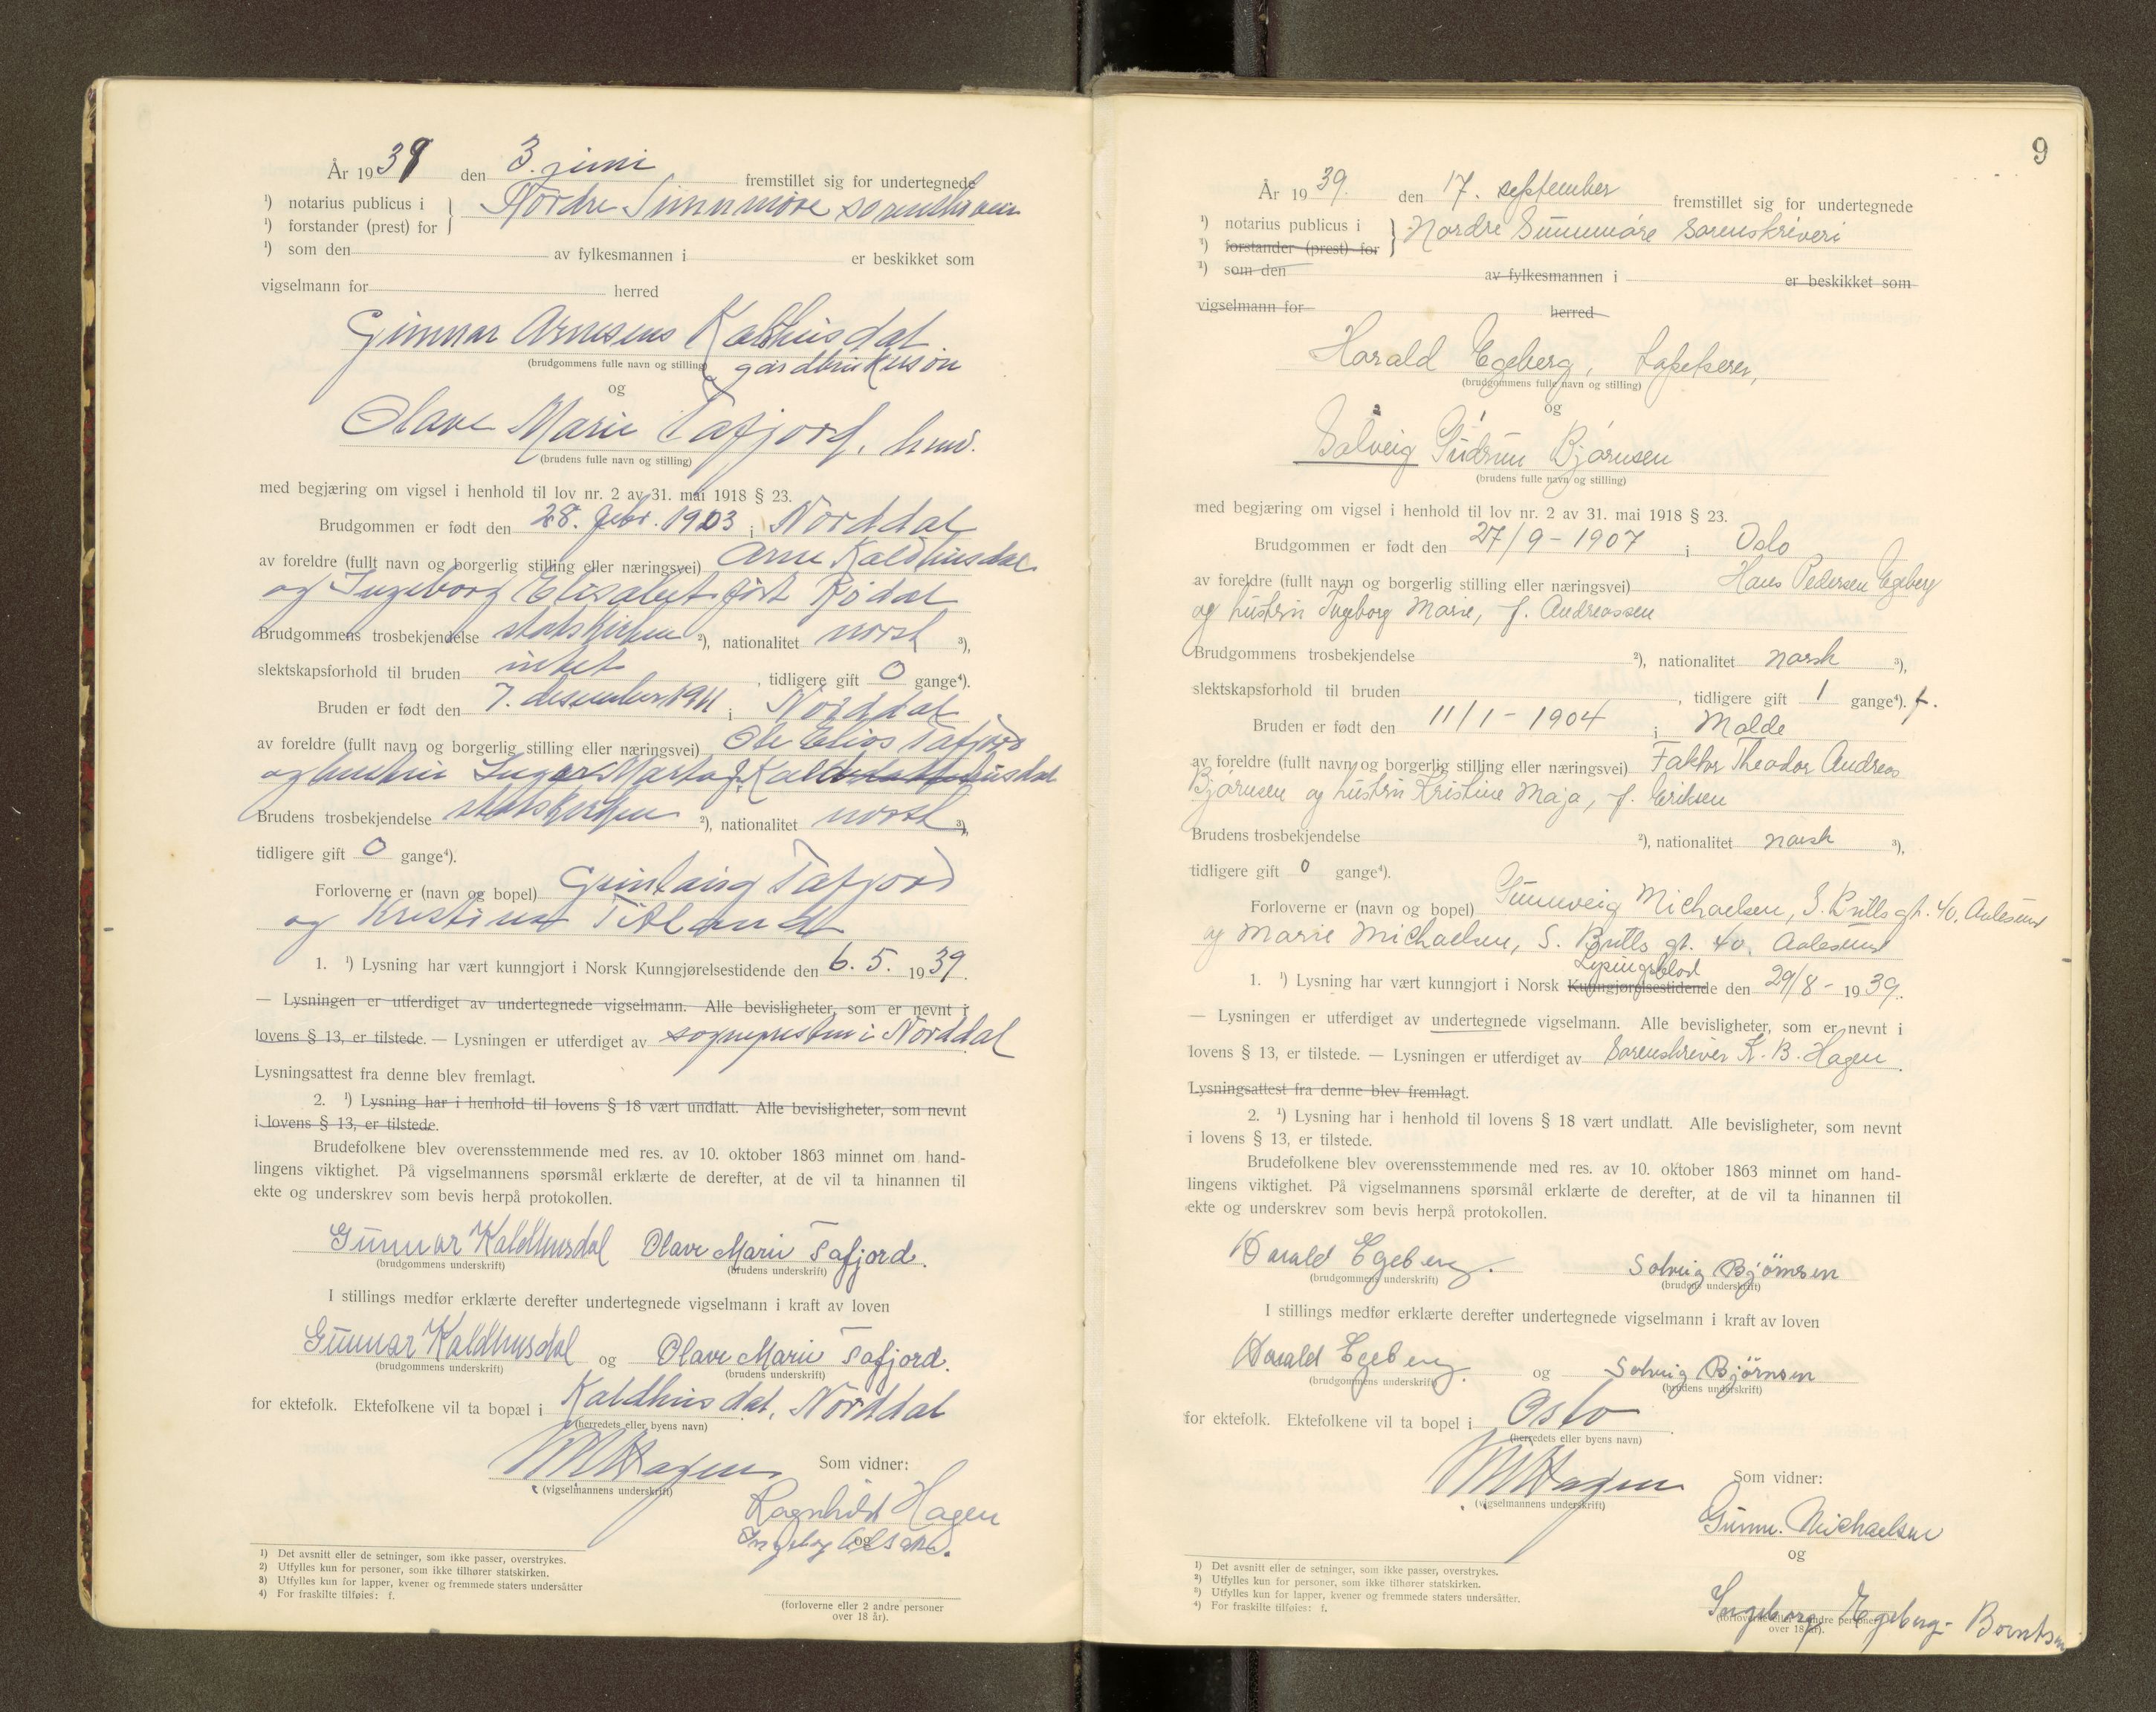 År 1939 den 3. juni fremstillet sig for undertegnede
¹) notarius publicus i } Nordre Sunnmøre
¹) forstander (prest) for
¹) som den av fylkesmannen i er beskikket som
vigselmann for herred
Gunnar Arnesens Kaldhusdal
gårdbrukersøn
(brudgommens fulle navn og stilling)
og
Olave Marie Tafjord,
(brudens fulle navn og stilling)
med begjæring om vigsel i henhold til lov nr. 2 av 31. mai 1918 § 23.
Brudgommen er født den 28. febr. 1903 i Norddal
av foreldre (fullt navn og borgerlig stilling eller næringsvei) Arne Kaldhusdal
og Ingeborg Elisabet født Rødal
Brudgommens trosbekjendelse statskirken ²), nationalitet norsk ³),
slektskapsforhold til bruden intet, tidligere gift 0 gange⁴).
Bruden er født den 7. desember 1911 i Norddal
av foreldre (fullt navn og borgerlig stilling eller næringsvei) Ole Elias Tafjord
og hustru Inga Marta f. Kaldhusdal
Brudens trosbekjendelse statskirken ²), nationalitet norsk ³),
tidligere gift 0 gange⁴).
Forloverne er (navn og bopel) Tafjord
og
1. ¹) Lysning har vært kunngjort i Norsk Kunngjørelsestidende den 6. 5. 1939.
— Lysningen er utferdiget av undertegnede vigselmann. Alle bevisligheter, som er nevnt i
lovens § 13, er tilstede. — Lysningen er utferdiget av sogneprsten i Norddal
Lysningsattest fra denne blev fremlagt.
2. ¹) Lysning har i henhold til lovens § 18 vært undlatt. Alle bevisligheter, som nevnt
i lovens § 13, er tilstede.
Brudefolkene blev overensstemmende med res. av 10. oktober 1863 minnet om hand-
lingens viktighet. På vigselmannens spørsmål erklærte de derefter, at de vil ta hinannen til
ekte og underskrev som bevis herpå protokollen.
Gunnar Kaldhusdal Olave Marie Tafjord.
(brudgommens underskrift) (brudens underskrift)
I stillings medfør erklærte derefter undertegnede vigselmann i kraft av loven
Gunnar Kaldhusdal og Olave Marie Tafjord.
(brudgommens underskrift) (brudens underskrift)
for ektefolk. Ektefolkene vil ta bopæl i Kaldhusdal, Norddal
(herredets eller byens navn)
Hagen Som vidner:
(vigselmannens underskrift)
Ragnhild Hagen
og
¹) Det avsnitt eller de setninger, som ikke passer, overstrykes.
²) Utfylles kun for personer, som ikke tilhører statskirken.
³) Utfylles kun for lapper, kvener og fremmede staters undersåtter
⁴) For fraskilte tilføies: f.
(forloverne eller 2 andre personer
over 18 år).
9
År 1939. den 17. september fremstillet sig for undertegnede
¹) notarius publicus i } Nordre Sunnmøre sorenskriveri
¹) forstander (prest) for
¹) som den av fylkesmannen i er beskikket som
vigselmann for herred
Harald Egeberg, tapetserer,
(brudgommens fulle navn og stilling)
og
Solveig Gudrun Bjørnsen
(brudens fulle navn og stilling)
med begjæring om vigsel i henhold til lov nr. 2 av 31. mai 1918 § 23.
Brudgommen er født den 27/9 - 1907 i Oslo
av foreldre (fullt navn og borgerlig stilling eller næringsvei) Hans Pedersen Egeberg
og hustru Ingeborg Marie, f. Andreassen
Brudgommens trosbekjendelse ²), nationalitet norsk ³),
slektskapsforhold til bruden , tidligere gift 1 gange⁴). f.
Bruden er født den 11/1 - 1904 i Molde
av foreldre (fullt navn og borgerlig stilling eller næringsvei) Faktor Theodor Andreas
Bjørnsen og hustru Kristine Maja, f. Eriksen
Brudens trosbekjendelse ²), nationalitet norsk ³),
tidligere gift 0 gange⁴).
Forloverne er (navn og bopel) Gunnveig Michaelsen, S. Bulls gt. 40, Aalesund
og Marie Michaelsen, S. Bulls gt. 40. Aalesund
Lysingsblad
1. ¹) Lysning har vært kunngjort i Norsk Kunngjørelsestidende den 29/8 - 1939.
— Lysningen er utferdiget av undertegnede vigselmann. Alle bevisligheter, som er nevnt i
lovens § 13, er tilstede. — Lysningen er utferdiget av Sorenskriver K. B. Hagen.
Lysningsattest fra denne blev fremlagt.
2. ¹) Lysning har i henhold til lovens § 18 vært undlatt. Alle bevisligheter, som nevnt
i lovens § 13, er tilstede.
Brudefolkene blev overensstemmende med res. av 10. oktober 1863 minnet om hand-
lingens viktighet. På vigselmannens spørsmål erklærte de derefter, at de vil ta hinannen til
ekte og underskrev som bevis herpå protokollen.
Harald Egeberg. Solveig Bjørnsen
(brudgommens underskrift) (brudens underskrift)
I stillings medfør erklærte derefter undertegnede vigselmann i kraft av loven
Harald Egeberg. og Solveig Bjørnsen
(brudgommens underskrift) (brudens underskrift)
for ektefolk. Ektefolkene vil ta bopel i Oslo
(herredets eller byens navn)
Hagen Som vidner:
(vigselmannens underskrift)
Gunnv. Michaelsen
og
Ingeborg Egeberg- Borntsen
¹) Det avsnitt eller de setninger, som ikke passer, overstrykes.
²) Utfylles kun for personer, som ikke tilhører statskirken.
³) Utfylles kun for lapper, kvener og fremmede staters undersåtter.
⁴) For fraskilte tilføies: f.
(forloverne eller 2 andre personer
over 18 år).